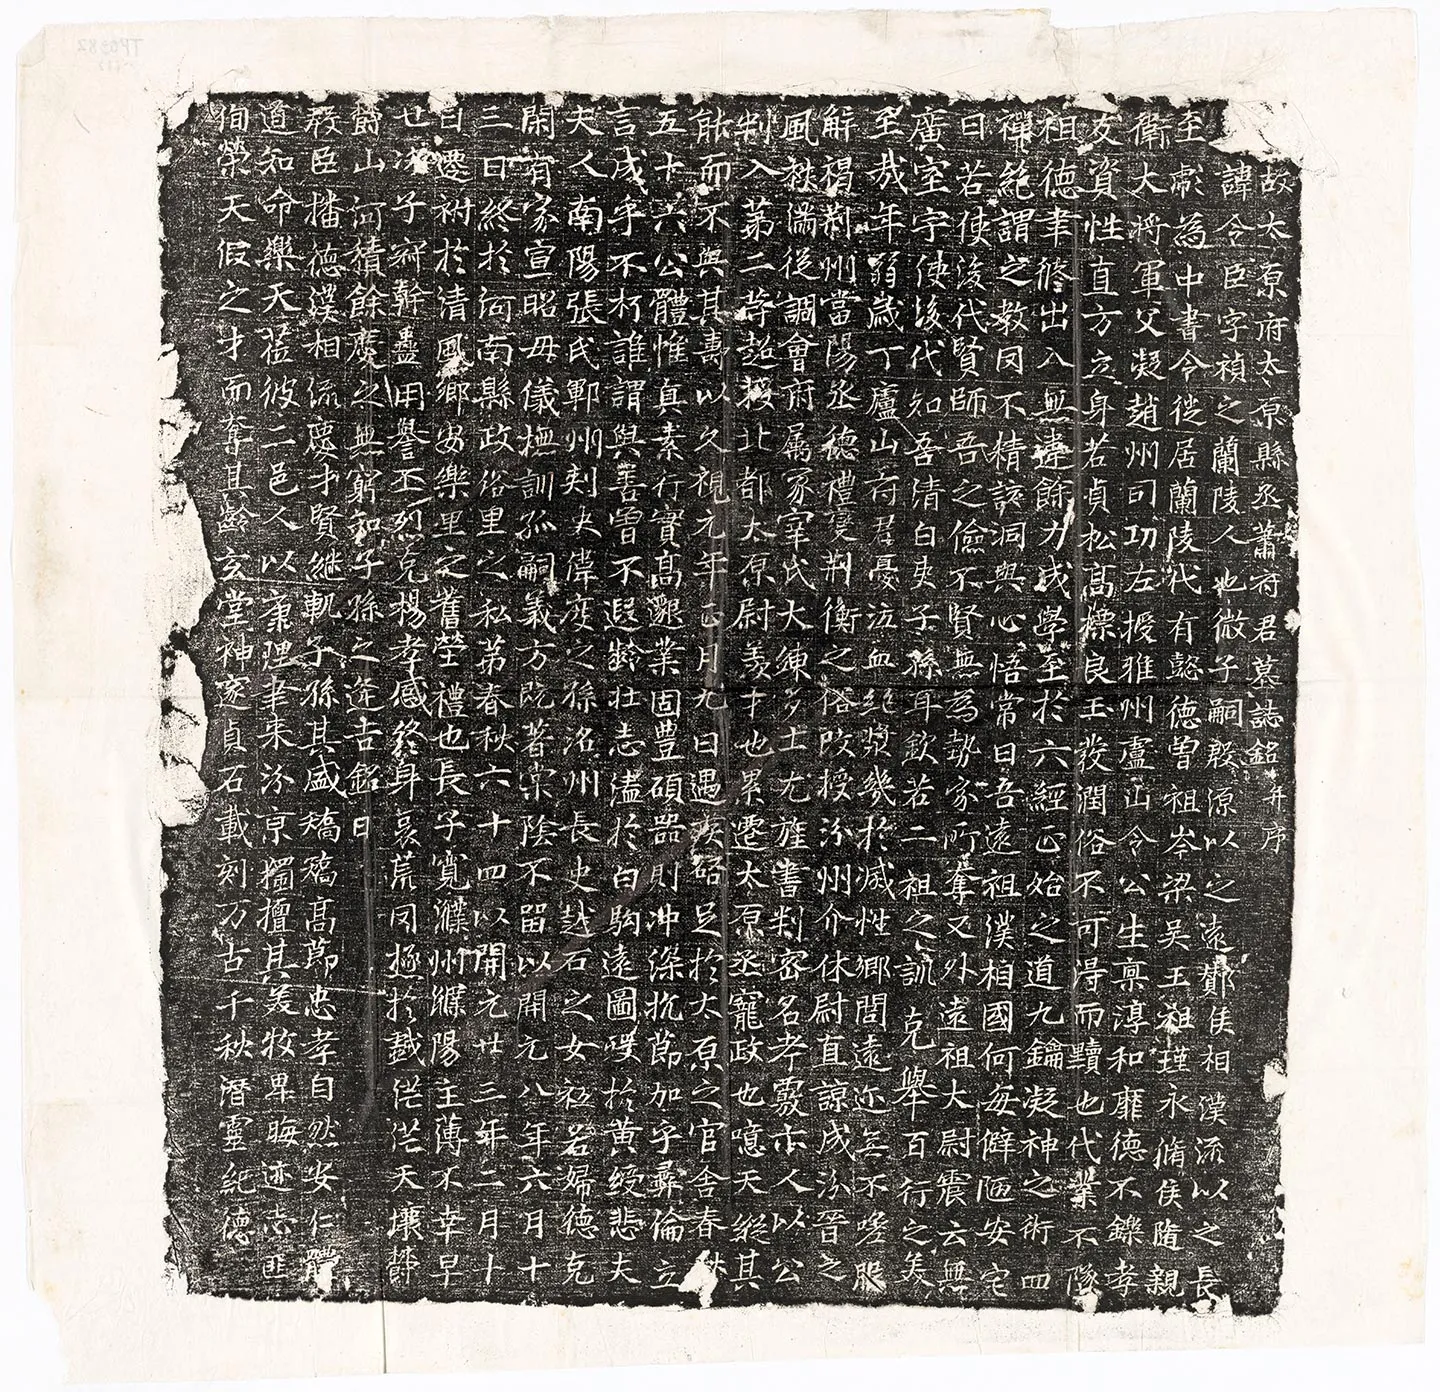 故太原府太原縣丞蕭府君墓誌銘并序
諱令臣字禎之蘭陵人也微子嗣殷源以之遠酇侯相漢流以之長
至彪為中書令徙居蘭陵代有懿德曾祖岑梁吳王祖瑾永脩侯隨親
衛大將軍父凝趙州司功左授雅州盧山令公生稟淳和靡德不鑠孝
友資性直方立身若貞松高標良玉發潤俗不可得而黷也代業不墜
祖德聿修出入無違餘力成學至於六經正始之道九鑰凝神之術四
禪絕謂之教罔不精該洞與心悟常曰吾遠祖漢相國何每僻陋安宅
曰若使後代賢師吾之儉不賢無為勢家所奪又外遠祖大尉震云無
廣室宇使後代知吾清白吏子孫耳欽若二祖之訓克舉百行之美
至哉年弱歲丁廬山府君憂泣血絕漿幾於滅性鄉閭遠迩無不嗟服
解褐荊州當陽丞德禮變荊衡之俗改授汾州介休尉直諒成汾晉之
風秩滿從調會府属冢宰氏大練多士尤旌書判密名考覈亦人以公
判入第二等超授北都太原尉美才也累遷太原丞寵政也噫天縱其
能而不與其壽以久視元年正月九日遇疾啟足於太原之官舍春秋
五十六公體惟真素行實高邈業固豊碩器則沖深抗節加乎彝倫立
言成乎不朽誰謂與善曾不遐齡壯志溘於白駒遠圖嘆於黃綬悲夫
夫人南陽張氏鄆州刺史偉度之孫洺州長史越石之女袛若婦德克
閑有家宣昭母儀撫訓孤嗣義方既著棠陰不留以開元八年六月十
三日終於河南縣政俗里之私第春秋六十四以開元廿三年二月十
日遷祔於清風鄉安樂里之舊塋禮也長子寬濮州濮陽主薄不幸早
世次子 幹蠱用譽丕烈克揚孝感終身哀荒罔極於戲茫茫天壤欝
欝山河積餘慶之無窮知子孫之逢吉銘曰
殷臣播德漢相流慶才賢継軌子孫其盛矯矯高節忠孝自然安仁體
道知命樂天蒞彼二邑人以康理聿来汾京獨擅其美牧卑晦迹志匪
徇榮天假之才而奪其齡玄堂神邃貞石載刻万古千秋潛靈紀德